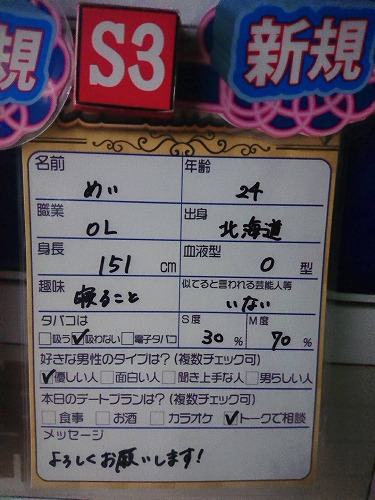 規
S3
新規
名前 めい
年齢 24
職業 OL
出身 北海道
身長 151 cm
血液型 O 型
趣味 寝ること
似てると言われる芸能人等 いない
タバコは
□吸う ☑吸わない □電子タバコ
S度 30 %
M度 70 %
好きな男性のタイプは?(複数チェック可)
☑優しい人 □面白い人 □聞き上手な人 □男らしい人
本日のデートプランは?(複数チェック可)
□食事 □お酒 □カラオケ ☑トークで相談
メッセージ
よろしくお願いします!